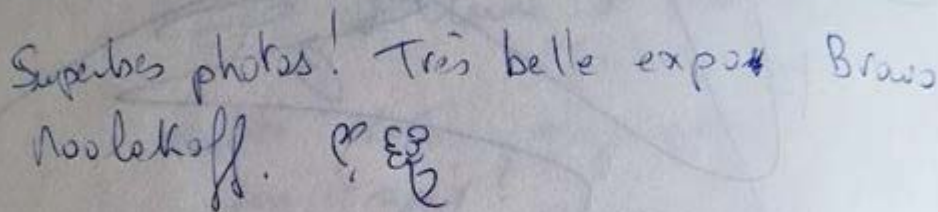 Superbes photos! Très belle expo Bravo
Moolakoff.